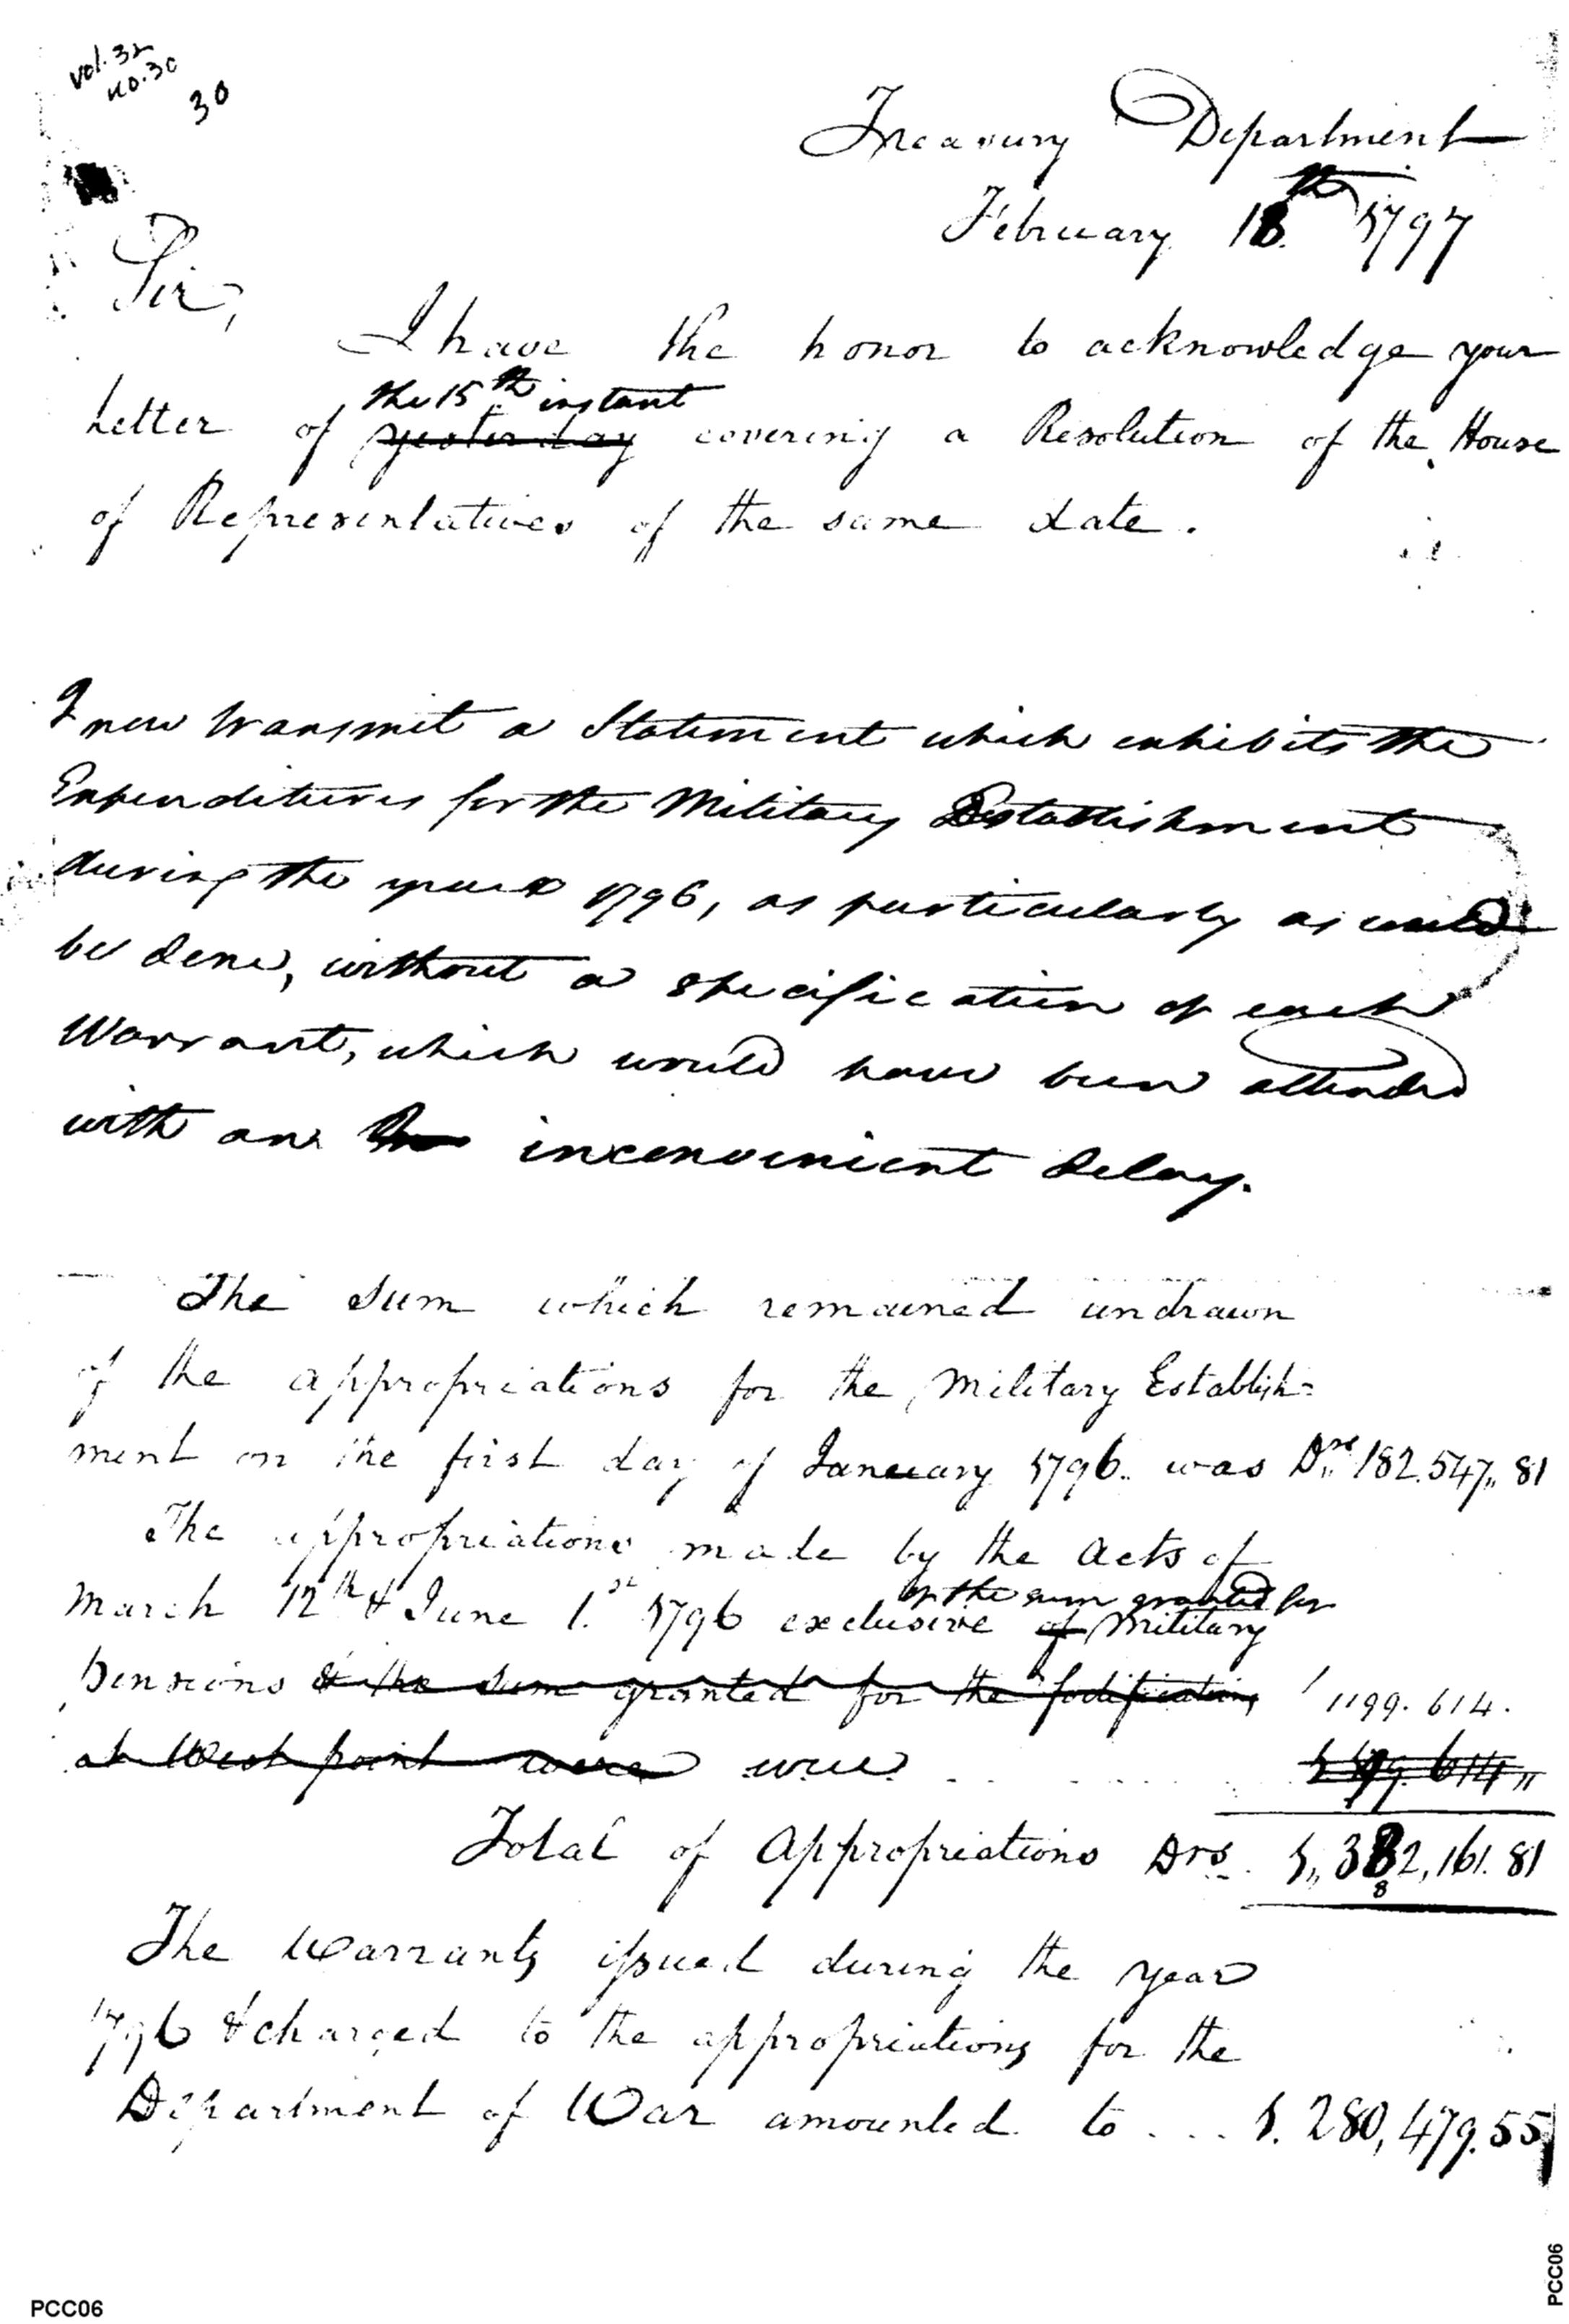 vol. 32
no. 30
30
Treasury Department
February 18th 1797
Sir,
I have the honor to acknowledge your
the 15th instant
Letter of yesterday covering a Resolution of the House
of Representatives of the same date.
I now transmit a Statement which exhibits the
Expenditures for the Military Establishment
during the year 1796, as particularly as could
be done, without a specification of each
Warrant, which would have been attended
with an inconvenient delay.
The Sum which remained undrawn
of the appropriations for the Military Establish=
ment on the first day of January 1796. was Drs 182.547,, 81
The appropriations made by the Acts of
of the sum granted for
March 12th & June 1.st 1796 exclusive of Military
pensions & the sum granted for the fortifications 1199. 614.
at West point were were
1 199. 614,,
Total of Appropriations Drs. 1,, 382, 161. 81
8
The Warrants issued during the year
1796 & charged to the appropriations for the
Department of War amounted to ... 1. 280, 479. 55
PCC06
PCC06